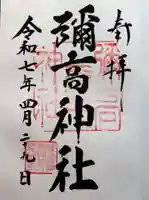 奉拝
彌高神社
令和七年四月二九日